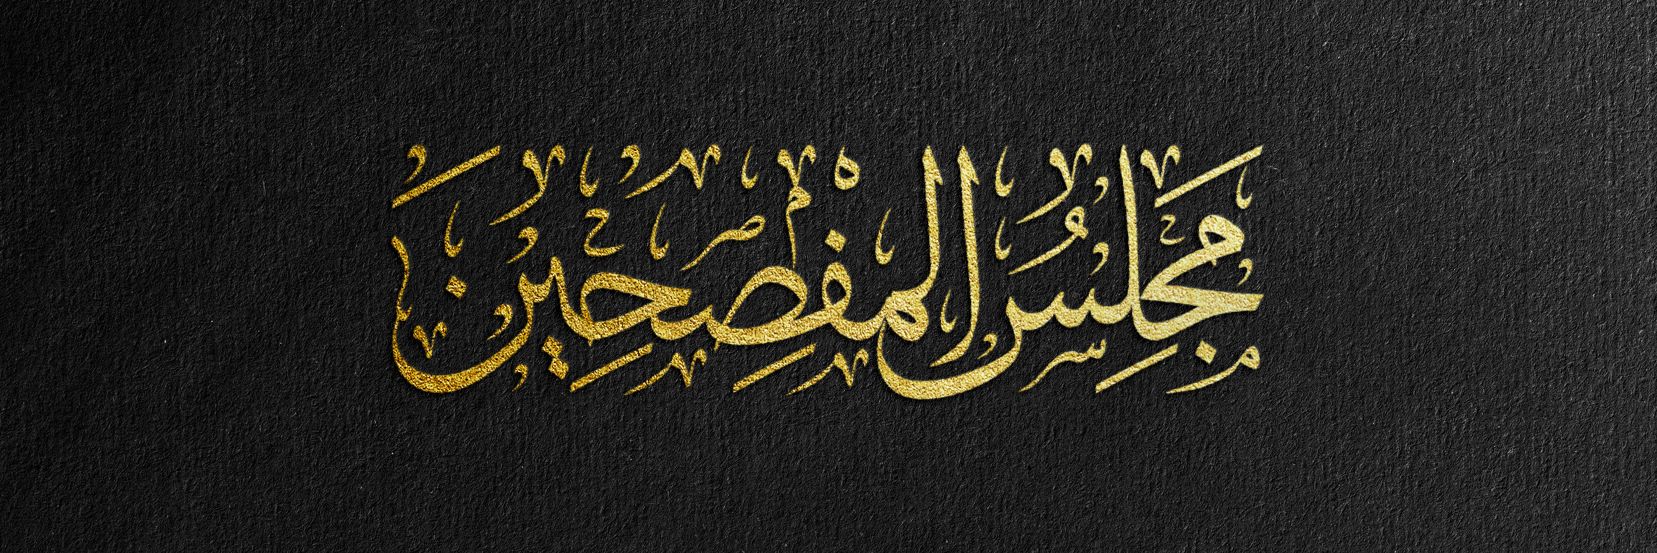 مَجْلِسُ المُفْصِحِينَ